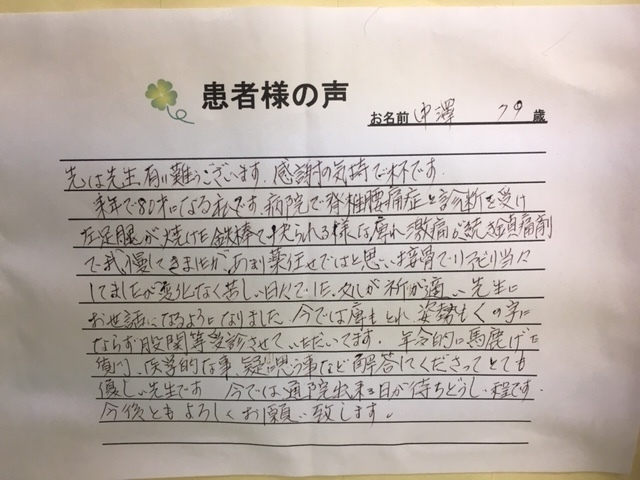 患者様の声
お名前 中澤 79歳
先は先生、有り難うございます、感謝の気持で一杯です。
来年で80才になる私です。病院で脊椎腰痛症と診断を受け
左足腿が焼けた鉄棒で されられる様な痺れ激痛が続き鎮痛剤
で我慢してきましたが、あまり薬任せではと思い接骨でリハビリ当々
してましたが変化なく苦しい日々でした、 が祈が適い先生に
お世話になるようになりました。今では痺もとれ姿勢もくの字に
ならず股関等受診させていただいてます。年令的に馬鹿げた
質問、医学的な事、疑に思う事など解答してくださってとても
優しい先生です 今では通院出来る日が待ちどうしい程です。
今後ともよろしくお願い致します。